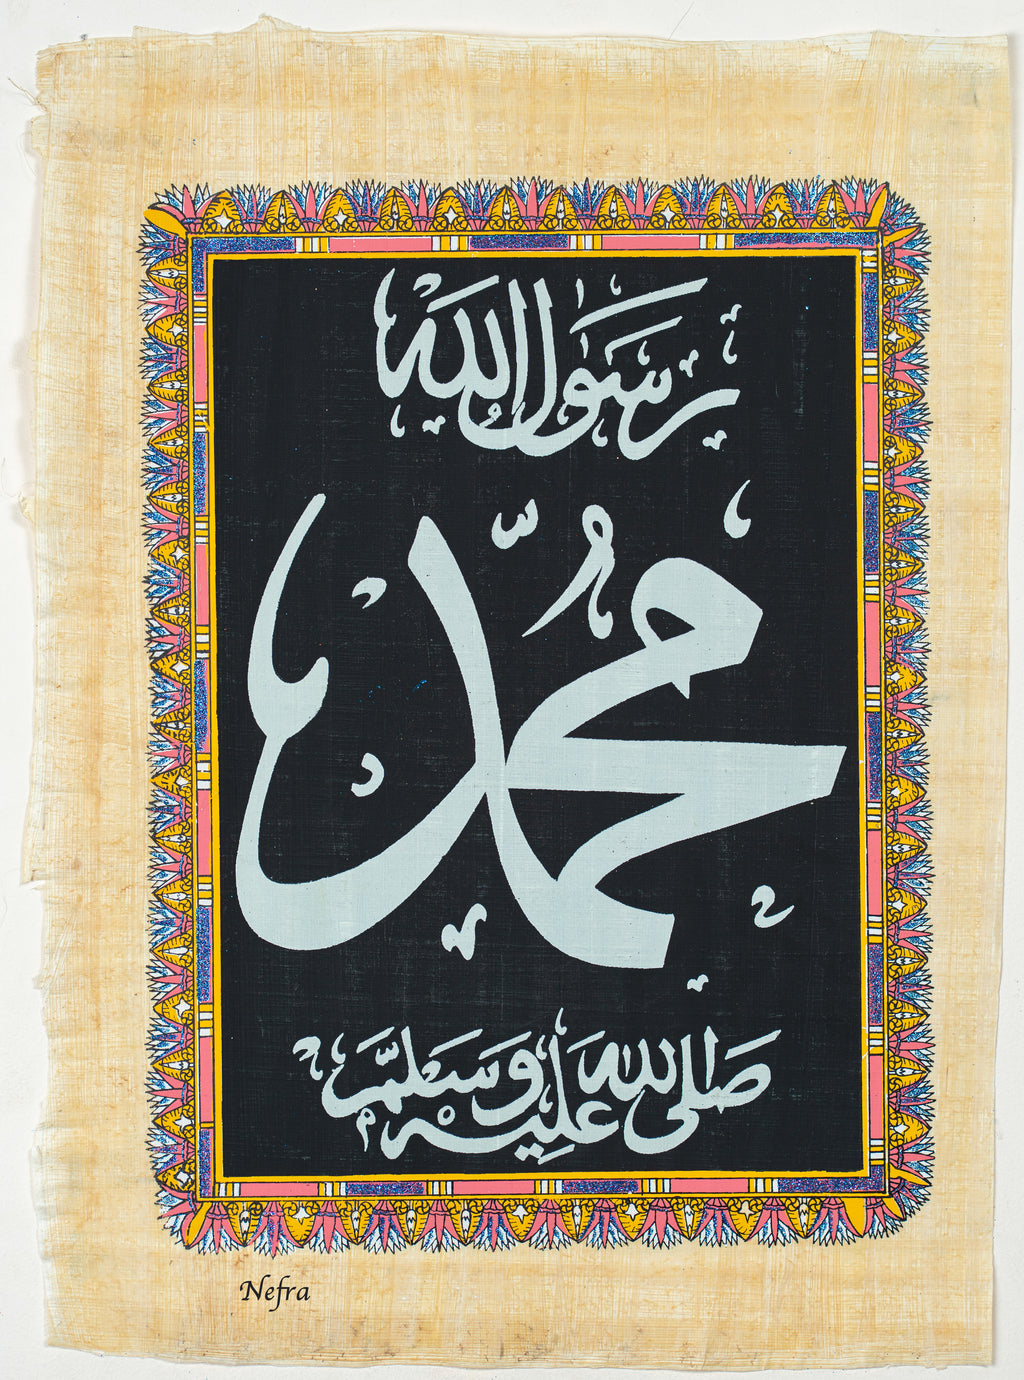 رَسُولُ اللَّهِ
مُحَمَّد
صَلَى اللَّه عَلَيْهِ وَسَلَّمَ
Nefra